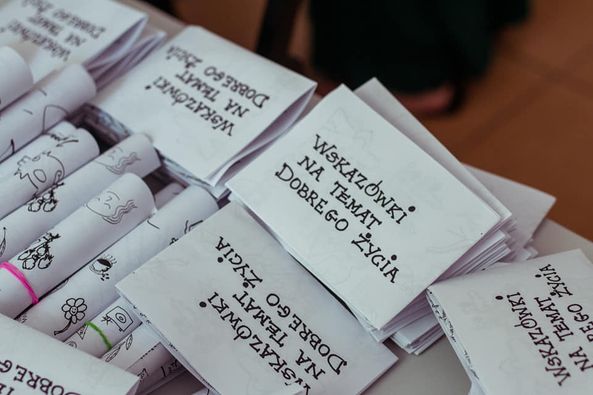 Wskazówki
na temat
Dobrego Życia
Wskazówki
na temat
Dobrego Życia
Wskazówki
na temat
Dobrego Życia
Wskazówki
na temat
Dobrego Życia
Wskazówki
na temat
Dobrego Życia
Dobrego Życia